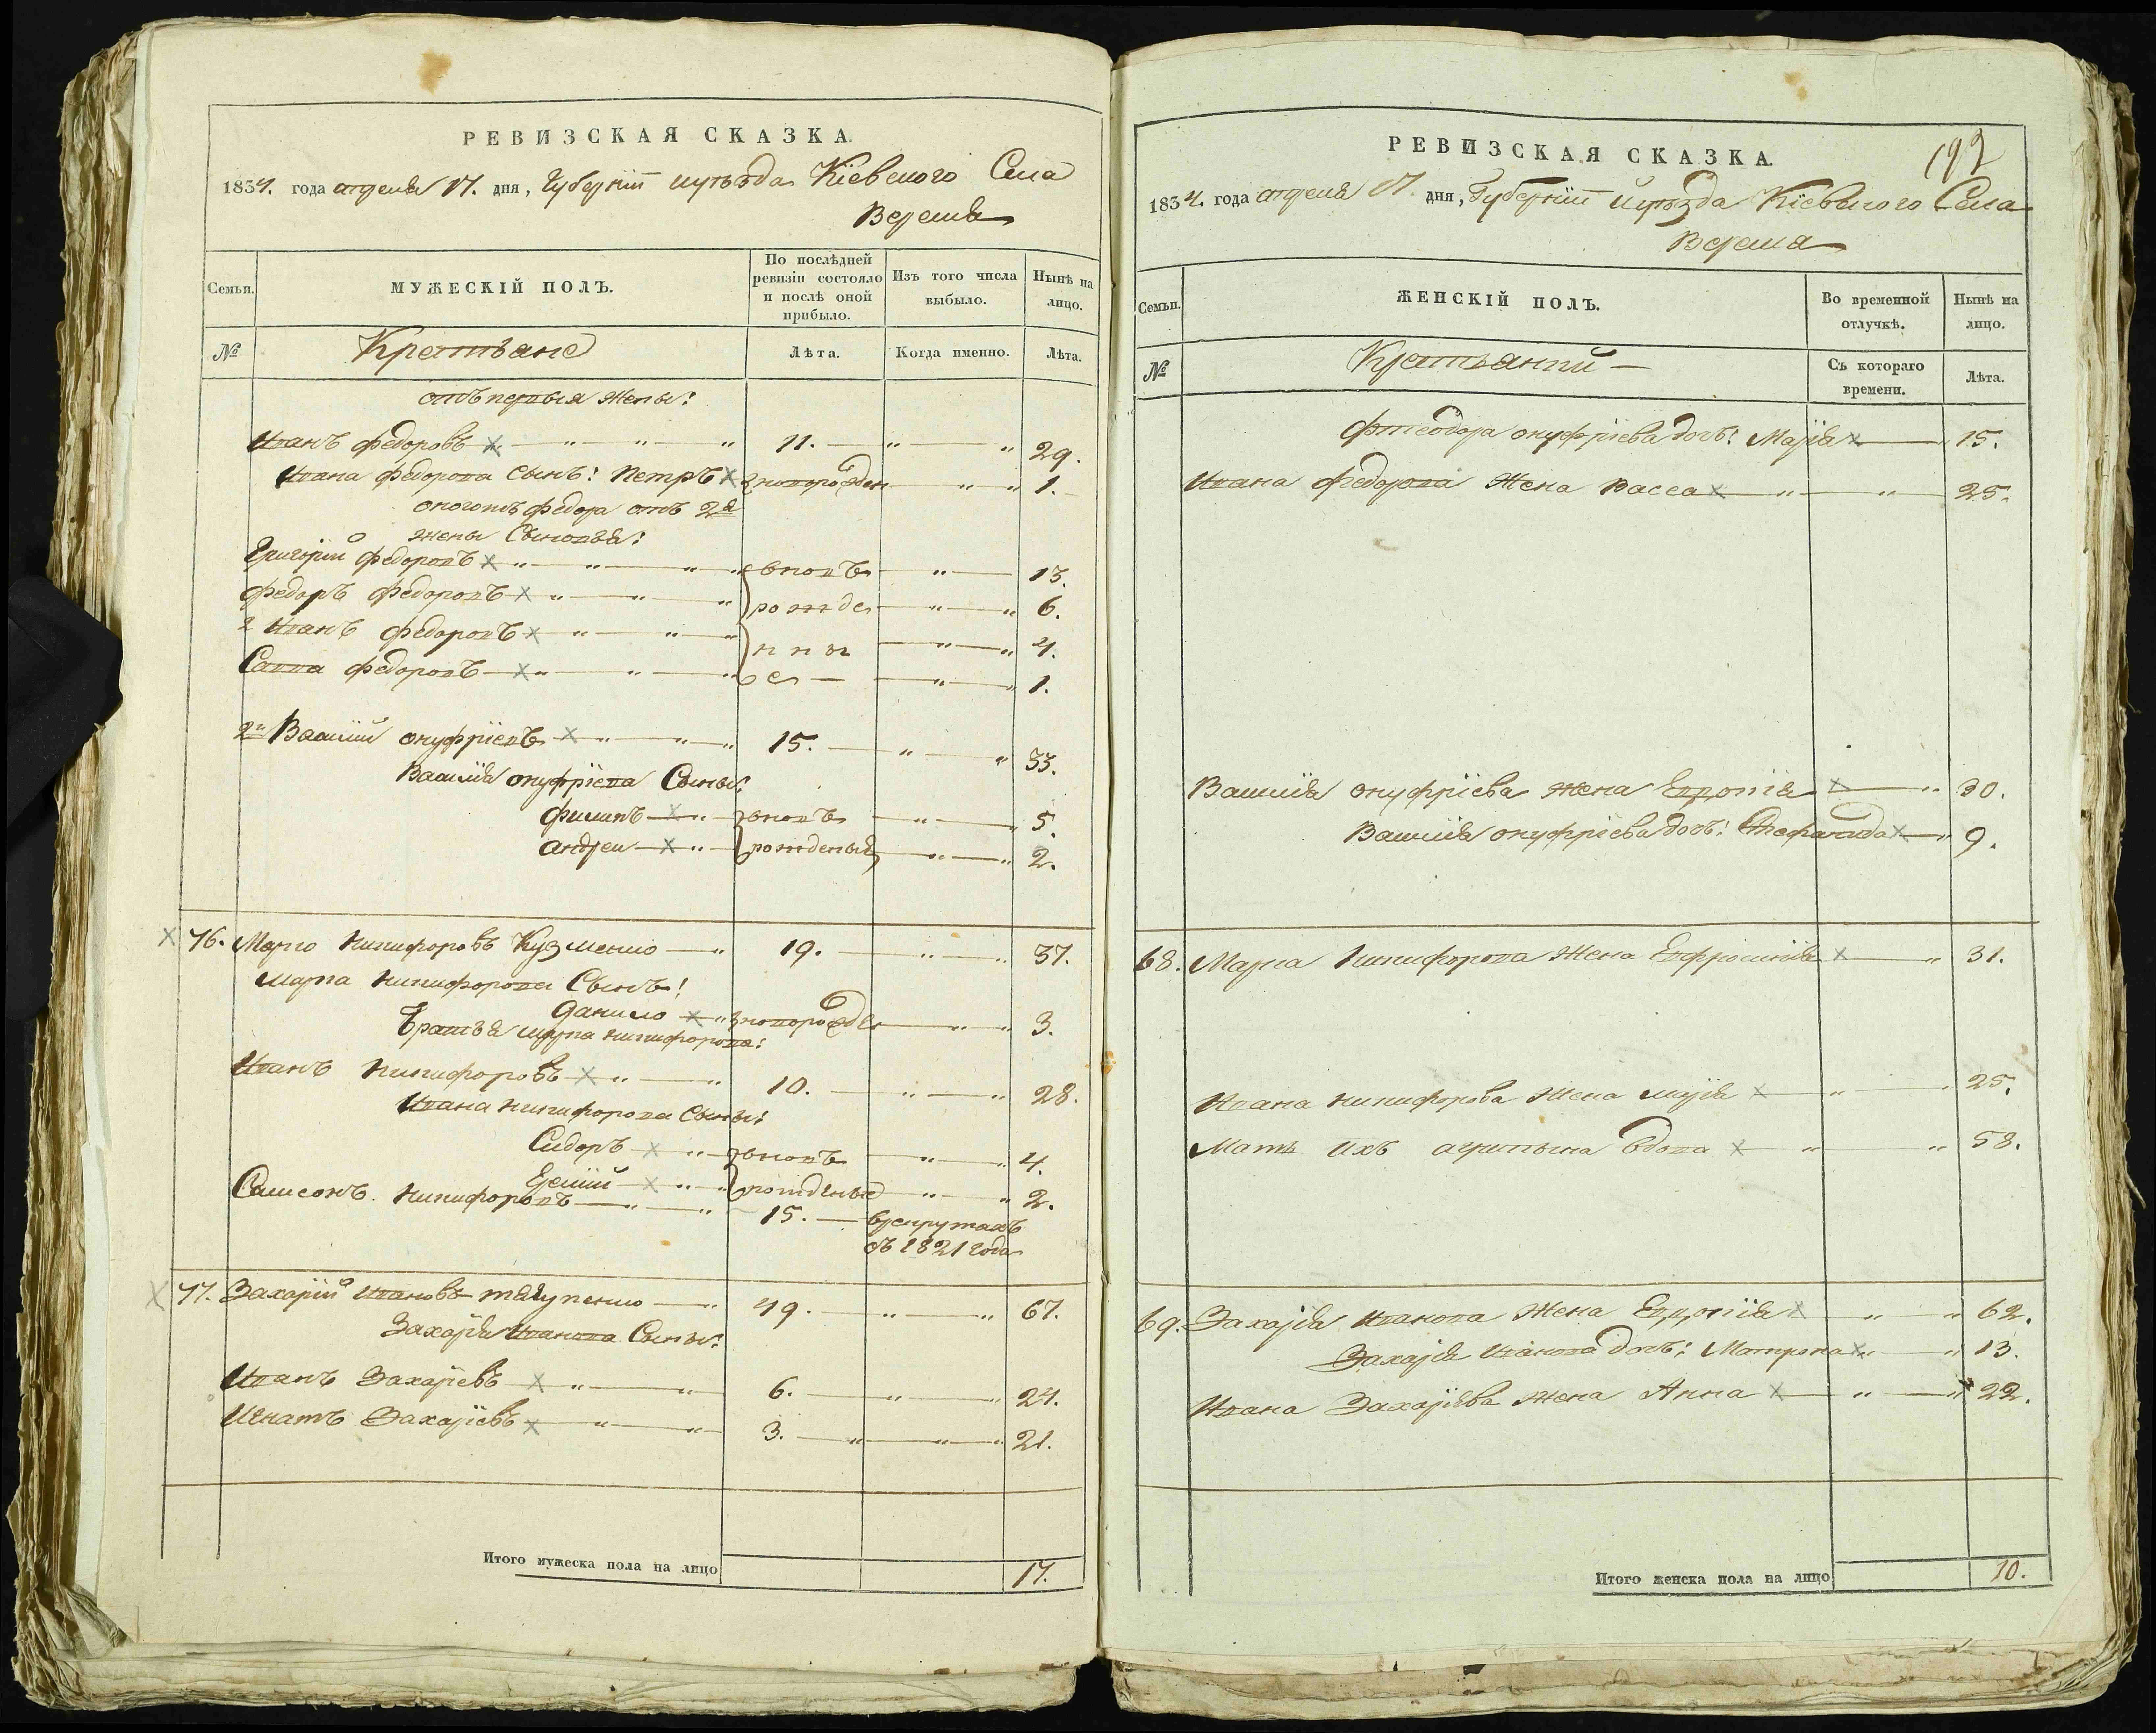 РЕВИЗСКАЯ СКАЗКА.
1834. года апреля 17. дня, Губерніи и уѣзда Кіевского Села
Веремья
Семьи.
МУЖЕСКІЙ ПОЛЪ.
По послѣдней ревизіи состояло и послѣ оной прибыло.
Изъ того числа выбыло.
Нынѣ на лицо.
№
Крестьяне
Лѣта.
Когда именно.
Лѣта.
отъ первыя жены:
Иванъ Федоровъ 11. 29.
Ивана Федорова сынъ: Петръ новорожден 1.
оногожъ Федора отъ 2й
жены Сыновья:
Григорій Федоровъ вновь 13.
Федоръ Федоровъ рожде 6.
2 Иванъ Федоровъ нны 4.
Савва Федоровъ е 1.
2й Василій Онуфріевъ 15. 33.
Василія Онуфріева Сыны:
Филипъ вновь 5.
Андреи рожденныя 2.
76. Марко Никифоровъ Кузменко 19. 37.
Марка Никифорова Сынъ:
Данило новорожде 3.
Братья Марка Никифорова:
Иванъ Никифоровъ 10. 28.
Ивана Никифорова Сыны:
Сидоръ вновь 4.
Еремій рожденные 2.
Самсонъ Никифоровъ 15. в рекрутахъ
съ 1821 года
77. Захарій Ивановъ 49. 67.
Захарія Иванова Сыны:
Иванъ Захаріевъ 6. 24.
Игнатъ Захаріевъ 3. 21.
Итого мужеска пола на лицо 17.
РЕВИЗСКАЯ СКАЗКА.
192
1834. года апреля 17. дня, Губерніи и уѣзда Кіевского Села
Веремья
Семьи.
ЖЕНСКІЙ ПОЛЪ.
Во временной отлучкѣ.
Нынѣ на лицо.
№
Крестьянки
Съ котораго времени.
Лѣта.
Онуфріева дочь: Марія 15.
Ивана Федорова Жена Васса 25.
Василія Онуфріева жена Евдокія 30.
Василія Онуфріева дочь: 9.
68. Марка Никифорова Жена Евфросинія 31.
Ивана Никифорова Жена Марія 25.
Мать Ихъ Агрипына вдова 58.
69. Захарія Иванова Жена Евдокія 62.
Захарія Иванова дочь: Матрона 13.
Ивана Захаріева жена Анна 22.
Итого женска пола на лицо 10.